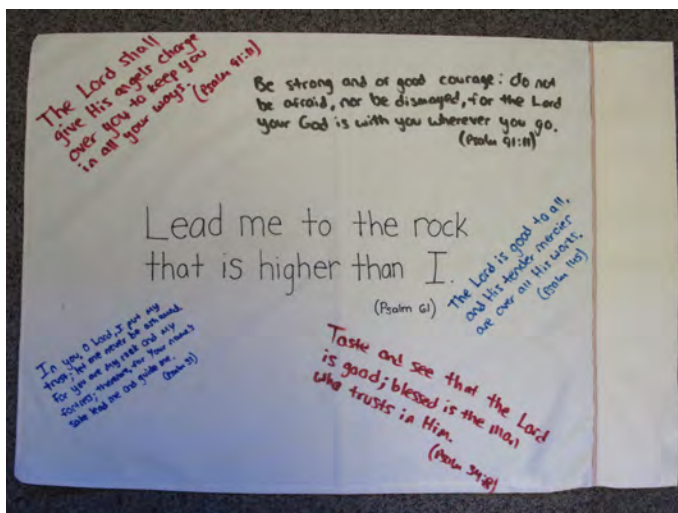 The Lord shall
give His angels charge
over you to keep you
in all your ways.
(Psalm 91:11)
Be strong and of good courage: do not
be afraid, nor be dismayed, for the Lord
your God is with you wherever you go.
(Psalm 91:11)
Lead me to the rock
that is higher than I.
(Psalm 61)
The Lord is good to all,
and His tender mercies
are over all His works.
(Psalm 145)
In you, O Lord, I put my
trust; let me never be ashamed.
For you are my rock and my
fortress; therefore, for Your name's
sake lead me and guide me.
(Psalm 31)
Taste and see that the Lord
is good; blessed is the man
who trusts in Him.
(Psalm 34:8)